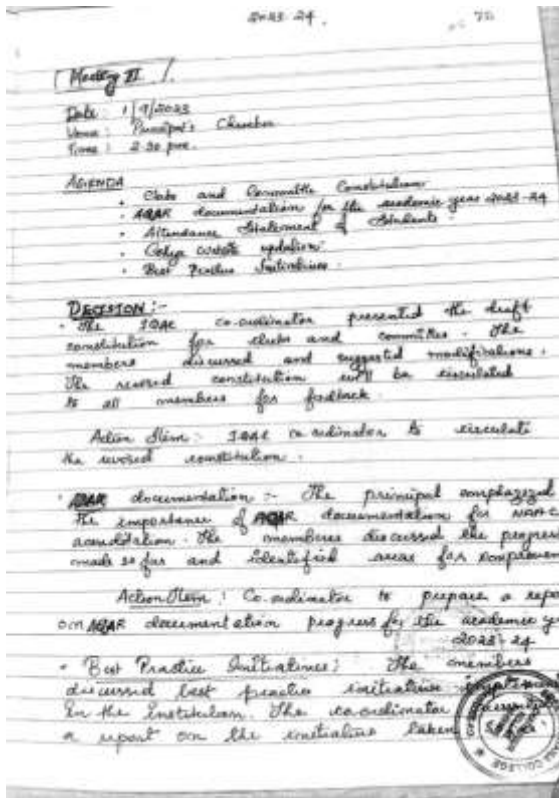 2023-24.
70
Meeting III
Date: 1/9/2023
Venue: Principal's Chamber
Time: 2.30 pm.
AGENDA
• Clubs and Committe Constitution
• AQAR documentation for the academic year 2023-24
• Attendance Statement of Students.
• College website updation.
• Best Practice Initiatives.
DECISION :-
• The IQAC co-ordinator presented the draft
constitution for clubs and committes. The
members discussed and suggested modifications.
The revised constitution will be circulated
to all members for feedback.
Action Item :- IQAC co-ordinator to circulate
the revised constitution.
• AQAR documentation :- The principal emphazized
the importance of AQAR documentation for NAAC
accreditation. The members discussed the progress
made so far and identified areas for improvement
Action Item : Co-ordinator to prepare a repo
on AQAR documentation progress for the academic ye
2023-24
• Best Practice Initiatives: The members
discussed best practice initiatives
in the institution. The co-ordinator
a report on the initiatives taken